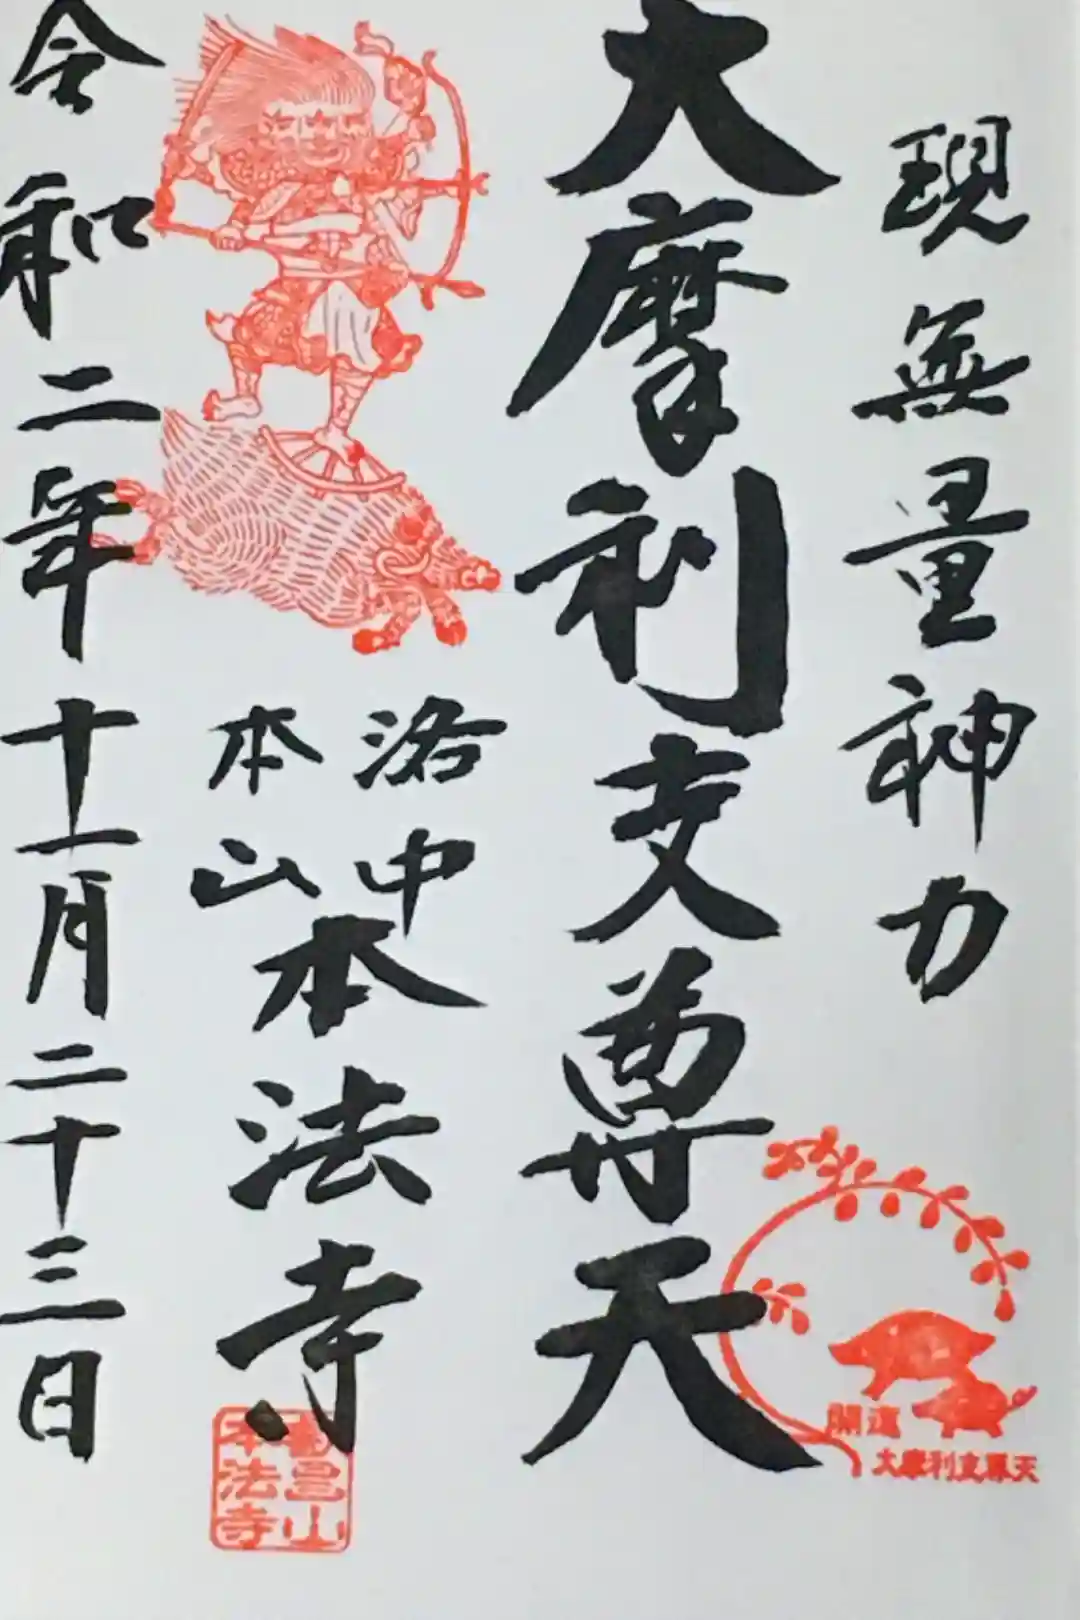 現無量神力
大摩利支尊天
開運
大摩利支尊天
洛中
本山
本法寺
山
本法寺
令和二年十一月二十三日